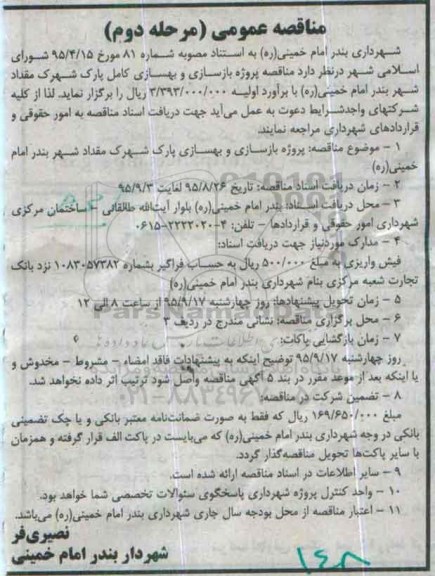 مناقصه عمومی (مرحله دوم)
شهرداری بندر امام خمینی(ره) به استناد مصوبه شماره ۸۱ مورخ ۹۵/۴/۱۵ شورای
اسلامی شهر درنظر دارد مناقصه پروژه بازسازی و بهسازی کامل پارک شهرک مقداد
شهر بندر امام خمینی(ره) با برآورد اولیه ۳/۳۹۳/۰۰۰/۰۰۰ ریال را برگزار نماید. لذا از کلیه
شرکتهای واجدشرایط دعوت به عمل می‌آید جهت دریافت اسناد مناقصه به امور حقوقی و
قراردادهای شهرداری مراجعه نمایند.
۱ - موضوع مناقصه: پروژه بازسازی و بهسازی پارک شهرک مقداد شهر بندر امام
خمینی(ره)
۲ - زمان دریافت اسناد مناقصه: تاریخ ۹۵/۸/۲۶ لغایت ۹۵/۹/۳
۳ - محل دریافت اسناد: بندر امام خمینی(ره) بلوار آیت‌الله طالقانی - ساختمان مرکزی
شهرداری امور حقوقی و قراردادها - تلفن: ۴-۲۲۲۲۰۲۰-۰۶۱۵
۴ - مدارک موردنیاز جهت دریافت اسناد:
فیش واریزی به مبلغ ۵۰۰/۰۰۰ ریال به حساب فراگیر بشماره ۱۰۸۳۰۵۷۳۸۲ نزد بانک
تجارت شعبه مرکزی بنام شهرداری بندر امام خمینی(ره)
۵ - زمان تحویل پیشنهادها: روز چهارشنبه ۹۵/۹/۱۷ از ساعت ۸ الی ۱۲
۶ - محل برگزاری مناقصه: نشانی مندرج در ردیف ۳
۷ - زمان بازگشایی پاکات:
روز چهارشنبه ۹۵/۹/۱۷ توضیح اینکه به پیشنهادات فاقد امضاء - مشروط - مخدوش و
یا اینکه بعد از موعد مقرر در بند ۵ آگهی مناقصه واصل شود ترتیب اثر داده نخواهد شد.
۸ - تضمین شرکت در مناقصه:
مبلغ ۱۶۹/۶۵۰/۰۰۰ ریال که فقط به صورت ضمانت‌نامه معتبر بانکی و یا چک تضمینی
بانکی در وجه شهرداری بندر امام خمینی(ره) که می‌بایست در پاکت الف قرار گرفته و همزمان
با سایر پاکت‌ها تحویل مناقصه‌گذار گردد.
۹ - سایر اطلاعات در اسناد مناقصه ارائه شده است.
۱۰ - واحد کنترل پروژه شهرداری پاسخگوی سئوالات تخصصی شما خواهد بود.
۱۱ - اعتبار مناقصه از محل بودجه سال جاری شهرداری بندر امام خمینی(ره) می‌باشد.
نصیری‌فر
شهردار بندر امام خمینی